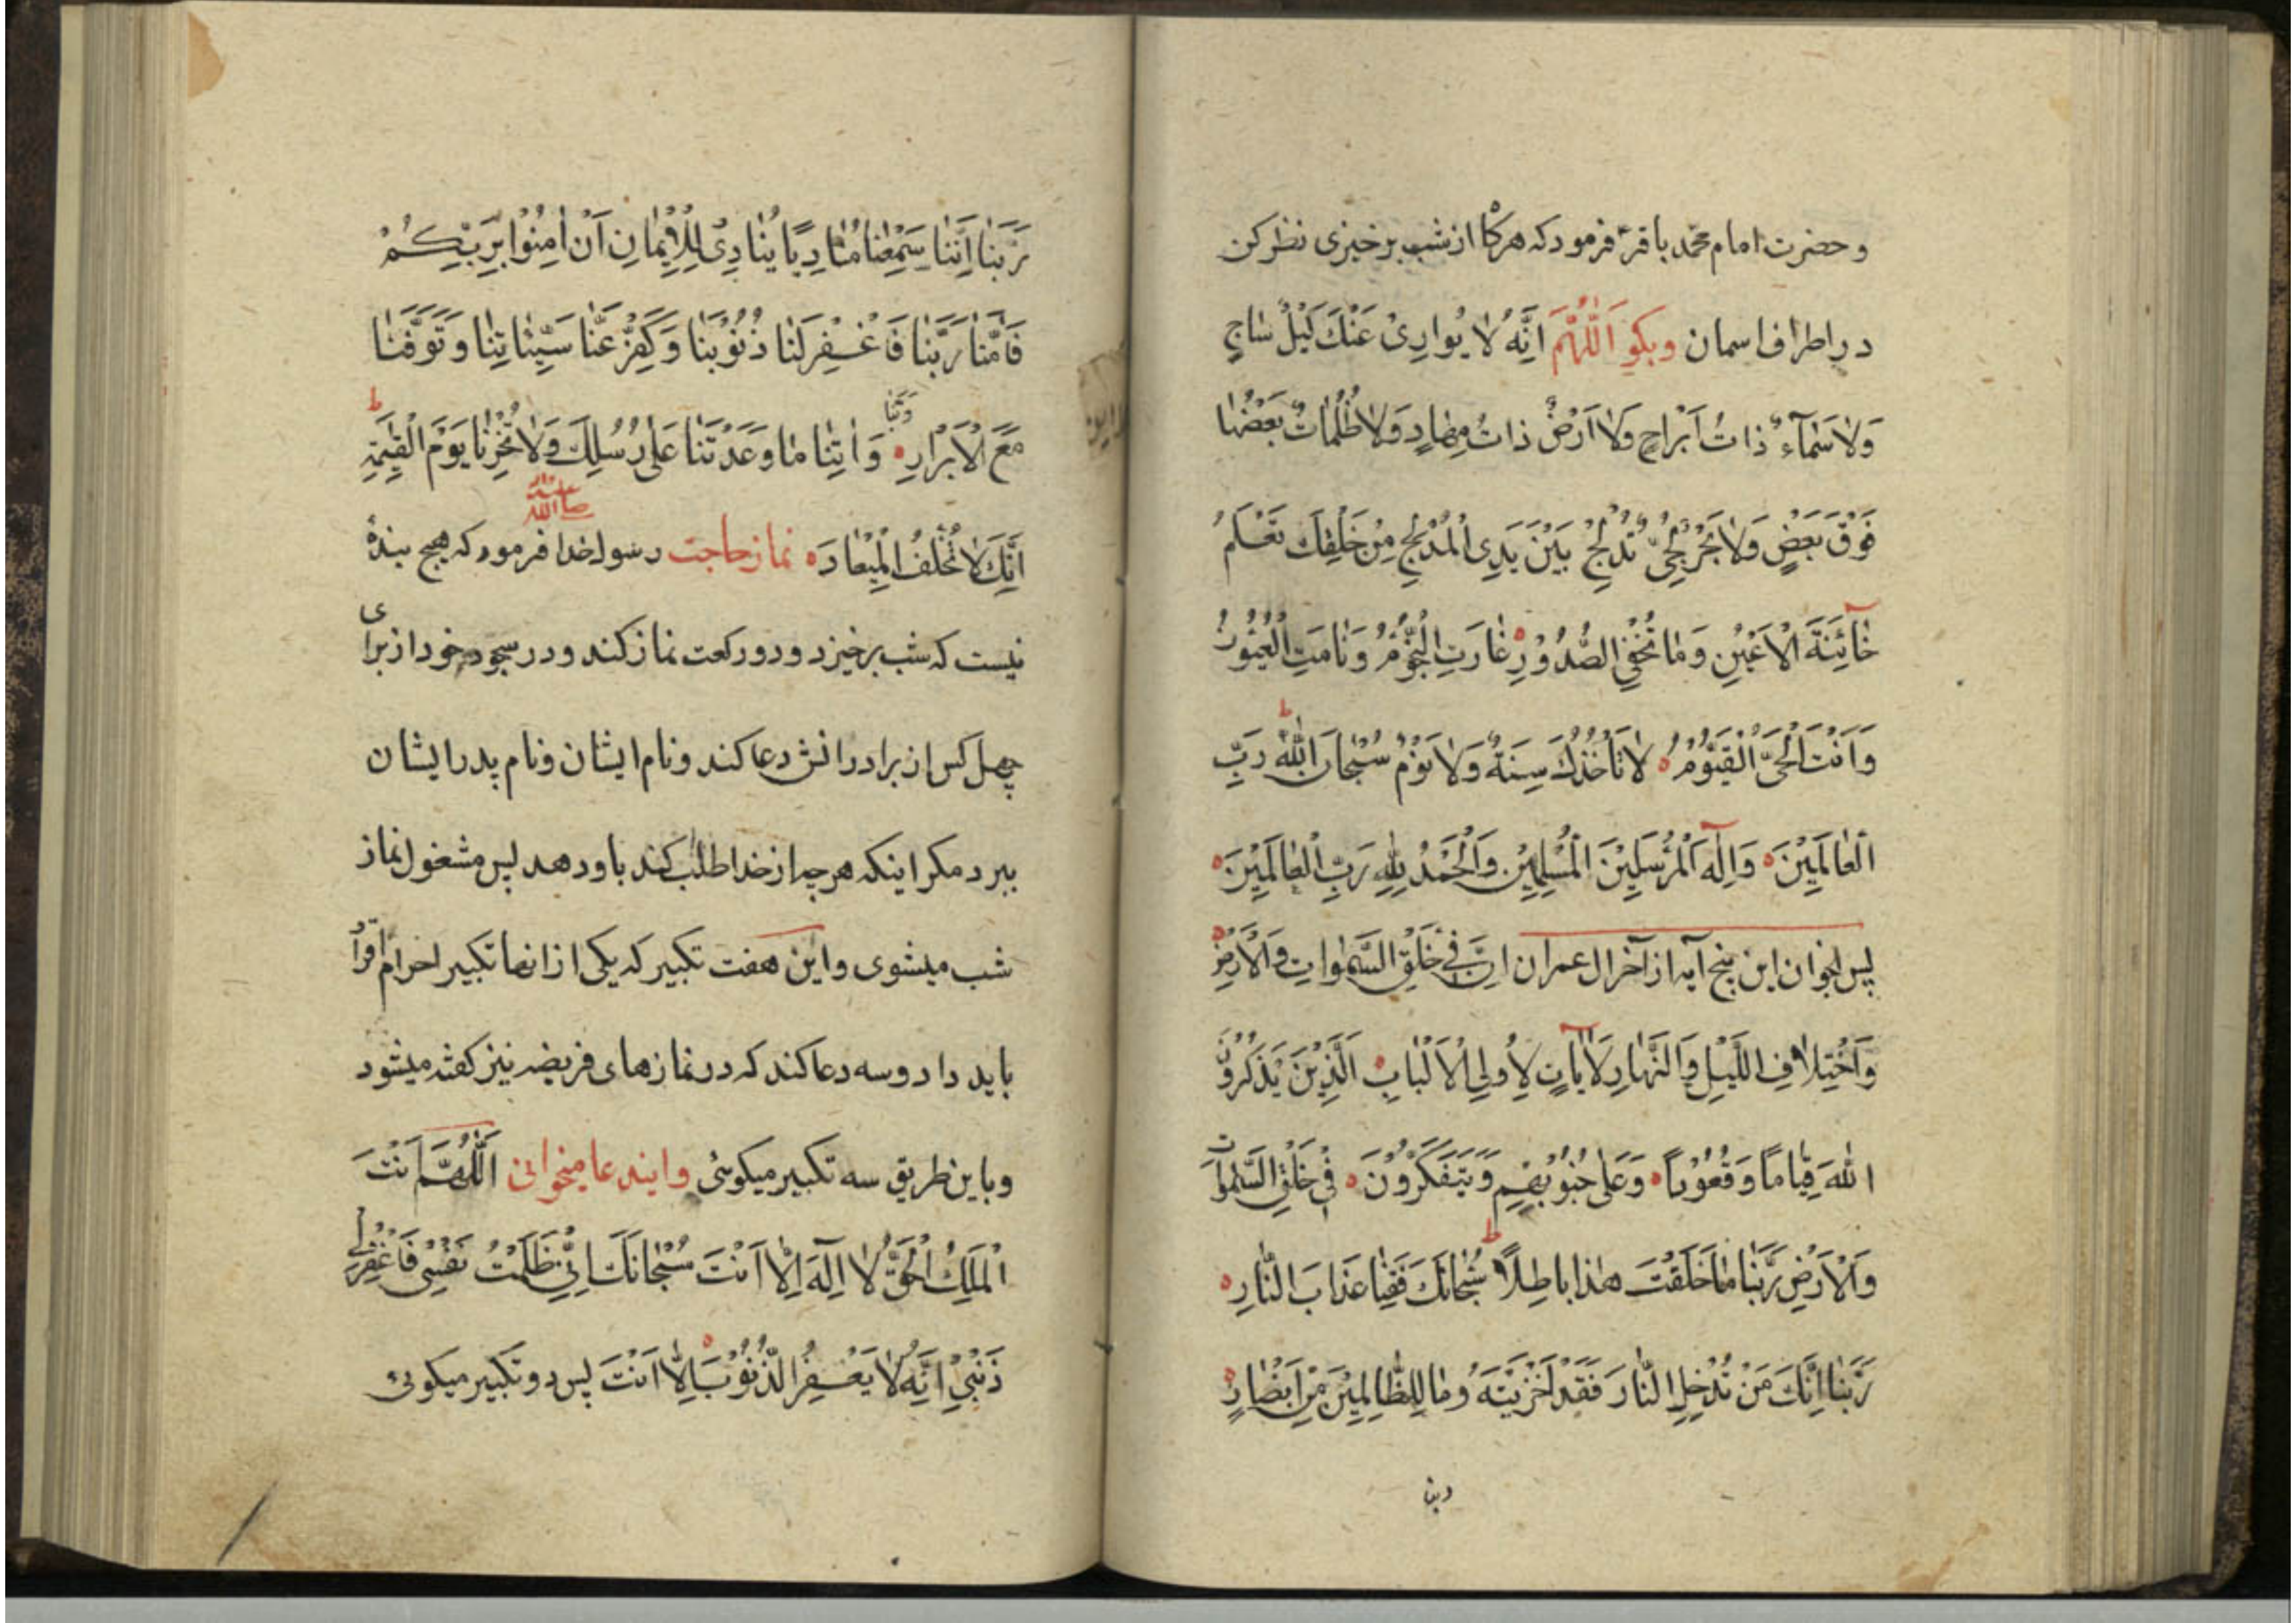 و حضرت امام محمد باقر ع فرمود که هرکاه از شب برخیزی نظر کن
در اطراف اسمان وبکو اَللّٰهُمَّ اِنَّهُ لا یُوارِیْ عَنْكَ لَیْلٌ سٰاجٍ
وَلا سَمٰآءٌ ذاتُ اَبْراجٍ وَلا اَرْضٌ ذاتُ مِهٰادٍ وَلا ظُلُماتٌ بَعْضُهٰا
فَوْقَ بَعْضٍ وَلا بَحْرٌ لُجِّیٌّ تُدْلِجُ بَیْنَ یَدَیِ الْمُدْلِجِ مِنْ خَلْقِكَ تَعْلَمُ
خٰآئِنَةَ الْاَعْیُنِ وَمٰا تُخْفِی الصُّدُوْرِ غٰارَتِ النُّجُوْمُ وَنٰامَتِ الْعُیُوْنُ
وَاَنْتَ الْحَیُّ الْقَیُّوْمُ لا تَأْخُذُكَ سِنَةٌ وَلا نَوْمٌ سُبْحٰانَ اللّٰهِ رَبِّ
الْعٰالَمِیْنَ وَاِلٰهِ الْمُرْسَلِیْنَ الْمُسْلِمِیْنَ وَالْحَمْدُ لِلّٰهِ رَبِّ الْعٰالَمِیْنَ
پس بخوان این پنج آیه از آخر ال عمران اِنَّ فِیْ خَلْقِ السَّمٰوٰاتِ وَالْاَرْضِ
وَاخْتِلافِ اللَّیْلِ وَالنَّهٰارِ لَاٰیٰاتٍ لِاُولِی الْاَلْبٰابِ اَلَّذِیْنَ یَذْكُرُوْنَ
اللّٰهَ قِیٰامًا وَقُعُوْدًا وَعَلٰی جُنُوْبِهِمْ وَیَتَفَكَّرُوْنَ فِیْ خَلْقِ السَّمٰوٰاتِ
وَالْاَرْضِ رَبَّنٰا مٰا خَلَقْتَ هٰذا باطِلًا سُبْحٰانَكَ فَقِنٰا عَذابَ النّٰارِ
رَبَّنٰا اِنَّكَ مَنْ تُدْخِلِ النّٰارَ فَقَدْ اَخْزَیْتَهُ وَمٰا لِلظّٰالِمِیْنَ مِنْ اَنْصٰارٍ
ربنا
رَبَّنٰا اِنَّنٰا سَمِعْنٰا مُنٰادِیًا یُنٰادِیْ لِلْاِیْمٰانِ اَنْ اٰمِنُوْا بِرَبِّكُمْ
فَاٰمَنّٰا رَبَّنٰا فَاغْفِرْ لَنٰا ذُنُوْبَنٰا وَكَفِّرْ عَنّٰا سَیِّئٰاتِنٰا وَتَوَفَّنٰا
مَعَ الْاَبْرٰارِ رَبَّنٰا وَاٰتِنٰا مٰا وَعَدْتَنٰا عَلٰی رُسُلِكَ وَلا تُخْزِنٰا یَوْمَ الْقِیٰمَةِ
اِنَّكَ لا تُخْلِفُ الْمِیْعٰادَ نماز حاجت رسول خدا صلی الله علیه فرمود که هیچ بندهٔ
نیست که شب برخیزد و دو رکعت نماز کند و در سجود خود از برای
چهل کس از برادرانش دعا کند و نام ایشان و نام پدر ایشان
ببرد مکر اینکه هر چه از خدا طلب کند باو دهد پس مشغول نماز
شب میشوی و این هفت تکبیر که یکی از انها تکبیر احرام قرا
باید داد و سه دعا کند که در نمازهای فریضه نیز کفته میشود
و باین طریق سه تکبیر میکوئی و ایندعا میخوانی اَللّٰهُمَّ اَنْتَ
الْمَلِكُ الْحَقُّ لا اِلٰهَ اِلّا اَنْتَ سُبْحٰانَكَ اِنِّیْ ظَلَمْتُ نَفْسِیْ فَاغْفِرْلِیْ
ذَنْبِیْ اِنَّهُ لا یَغْفِرُ الذُّنُوْبَ اِلّا اَنْتَ پس دو تکبیر میکوئی